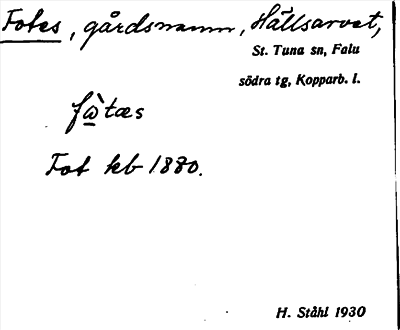 Fotes, gårdsnamn, Hällsarvet,
St. Tuna sn, Falu
södra tg, Kopparb. l.
fὼtæs
Fot kb 1880.
H. Ståhl 1930